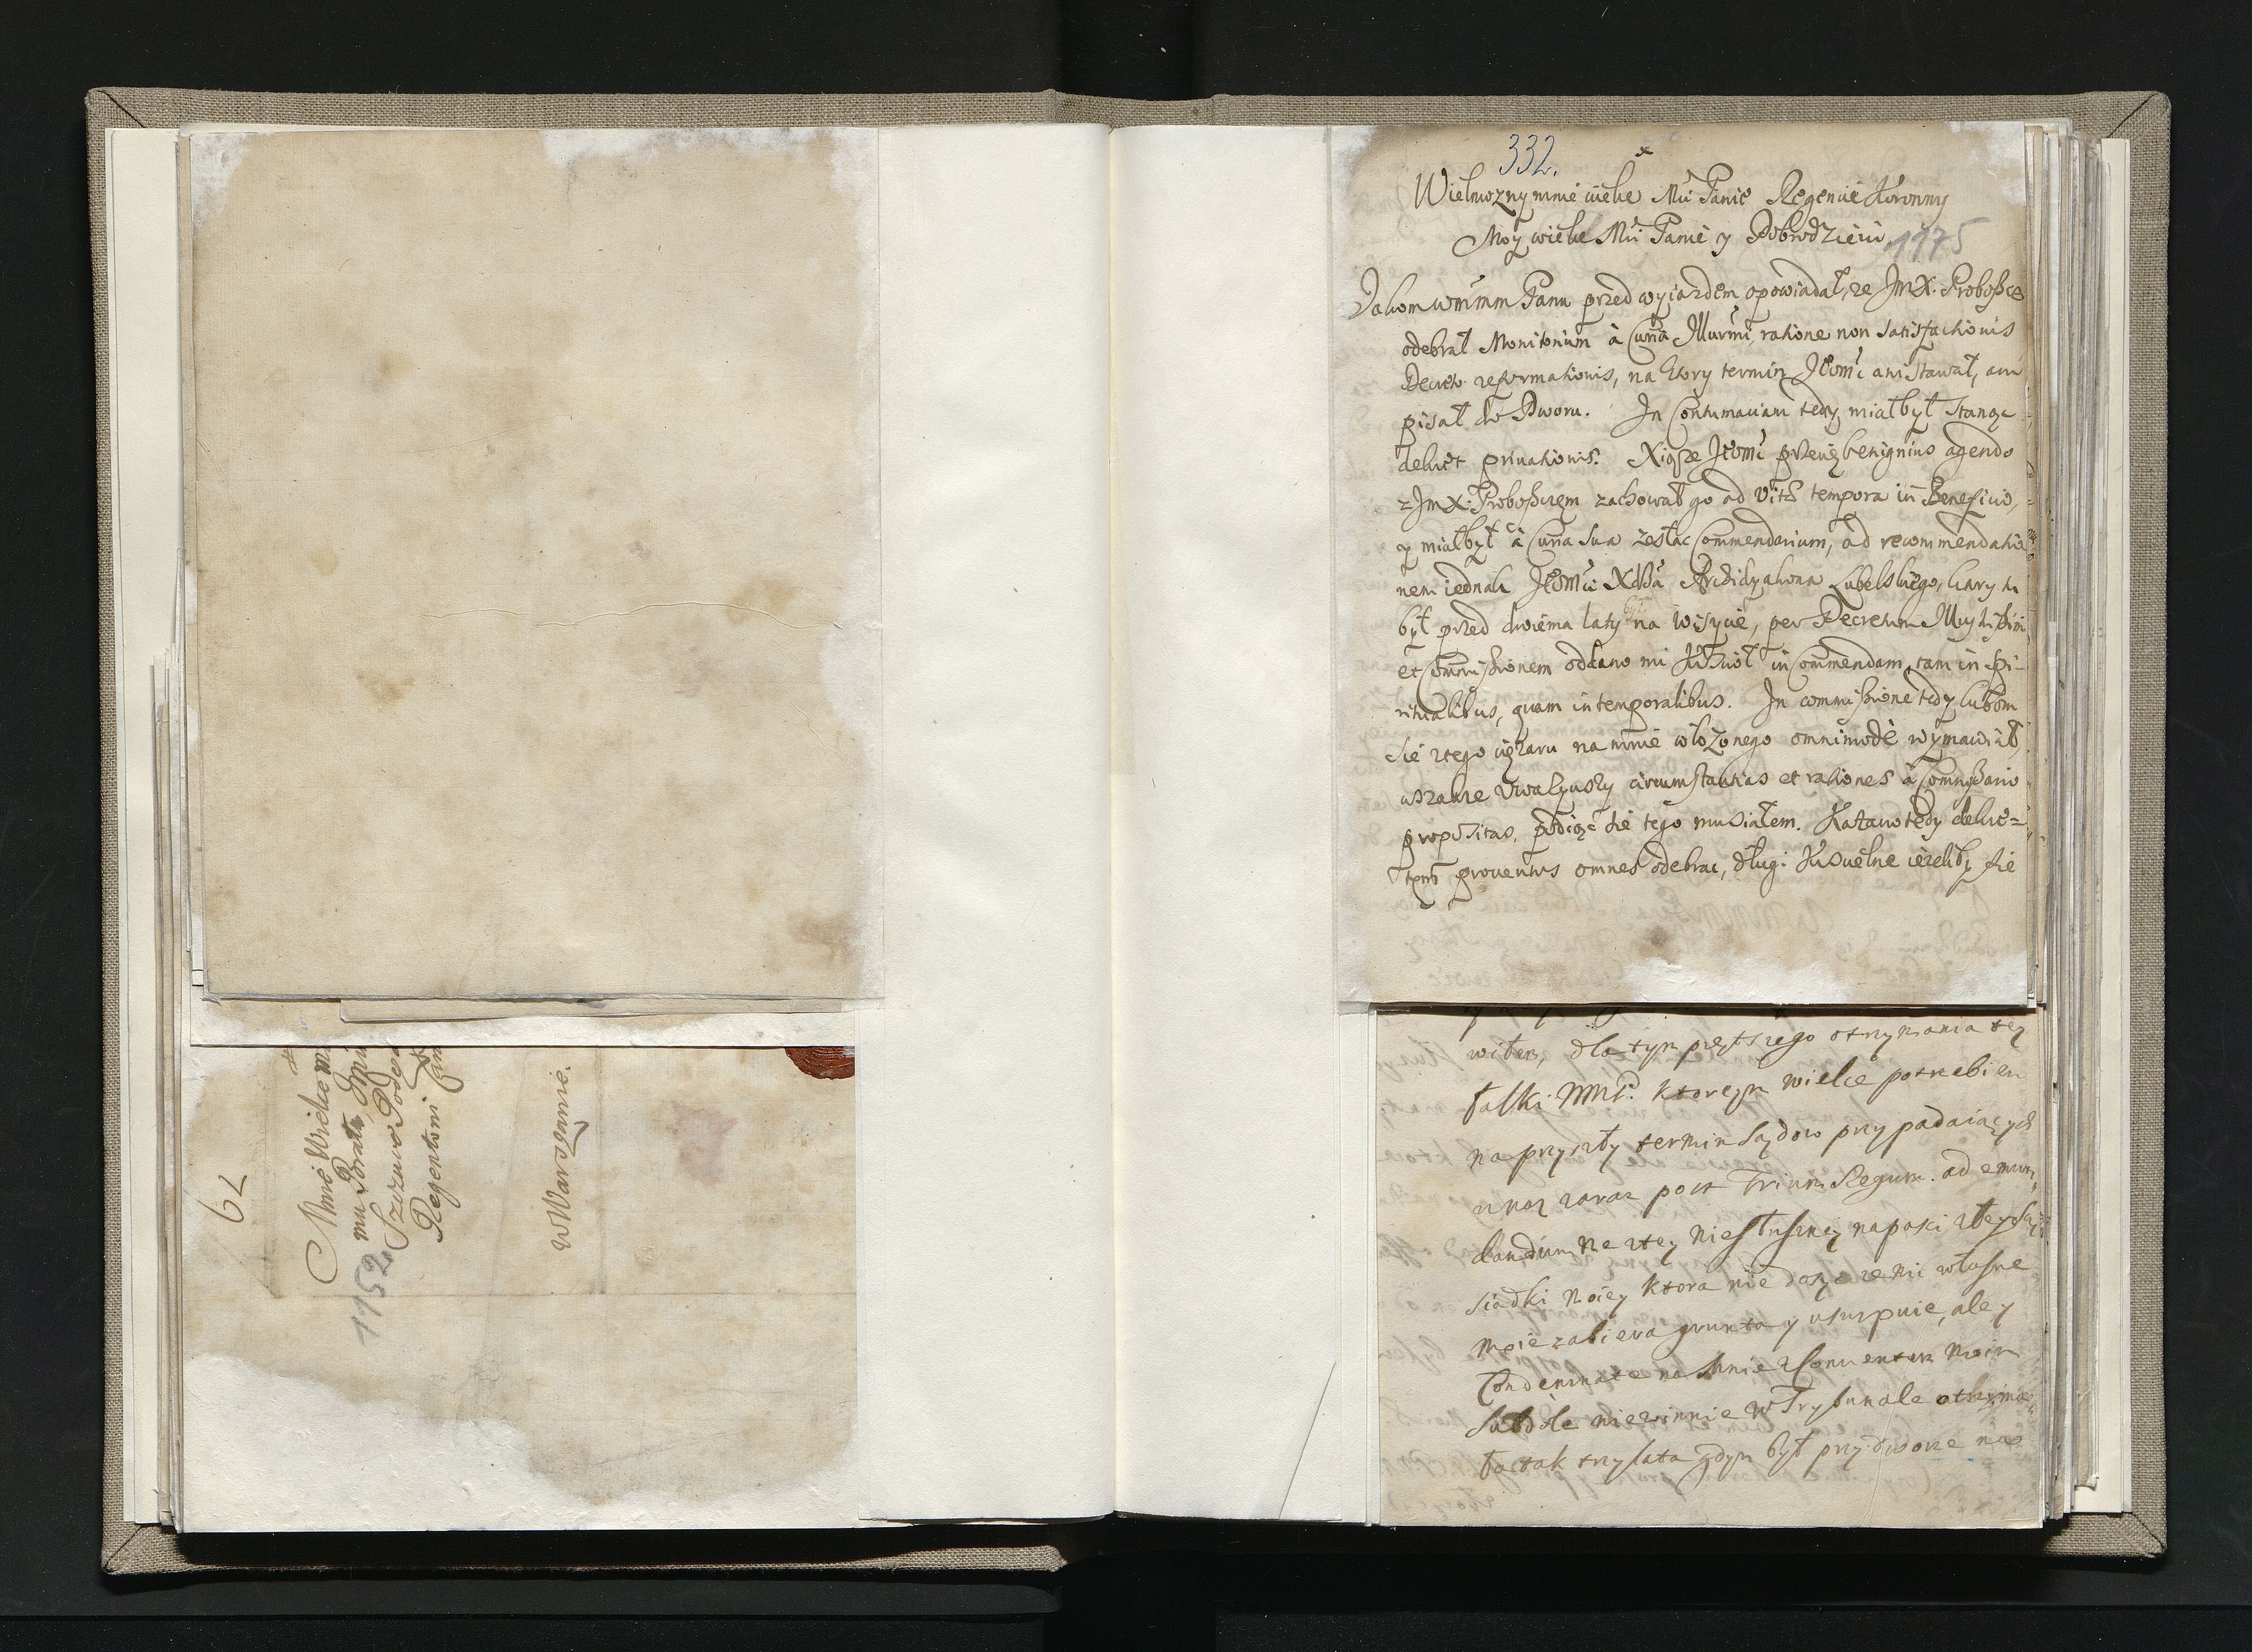 Mnie Wielce M
mu Panu, Panu
Szczuce Pode
Regentowi Can
w Warszawie.
62
1152
332.
Wielmozny mnie wielce Mći Panie Regencie Koronny
Moy wielce Mći Panie y Dobrodzieiu
1175
Jakom wmmm Panu przed wyiazdem opowiadał, ze JmX. Proboszcz
odebrał Monitorium à Curia Illurmi, ratione non satisfactionis
Decreto reformationis, na ktory termin Jeomć ani stawał, ani
pisał do Dworu. In Contumaciam tedy miał był stanąc
dekret privationis. Xiąze Jeomć przecię benignius agendo
z JmX. Proboszczem zachował go ad vitæ tempora in Beneficio,
y miał był à Curia sua zesłac Commendarium, ad recommendatio
nem iednak Jeomći Xdza Archidyakona Lubelskiego, ktory tu
był przed dwiema laty na Wizycie, per Decretum Illustrissimi
et Commissionem oddano mi Kosciół in Commendam, tam in spi-
ritualibus, quam in temporalibus. In commissione tedy lubom
się z tego cięzaru na mnie włozonego omnimode wymawiał,
wszakze uwazywszy circumstantias et rationes à Commissario
propositas, podiąć się tego musiałem. Kazano tedy dekre-
tem proventus omnes odebrac, długi Koscielne iezeliby się
witem, dla tym prętszego otrzymania tey
łaski WMP. ktorejem wielce potrzebien
na przyszły termin Sądow przypadaiących
zaraz post Trium Regum. ad emun
dandum me z tey niesłuszney napaści z tey Są
siadki moiey ktora nie dosyc ze mi własne
moie zabiera grunta y usurpuie, ale y
Condemnate na mnie z Conventem moim
subdole niewinnie w Trybunale otrzyma
ła tak trzy lata gdym był przy dworze na